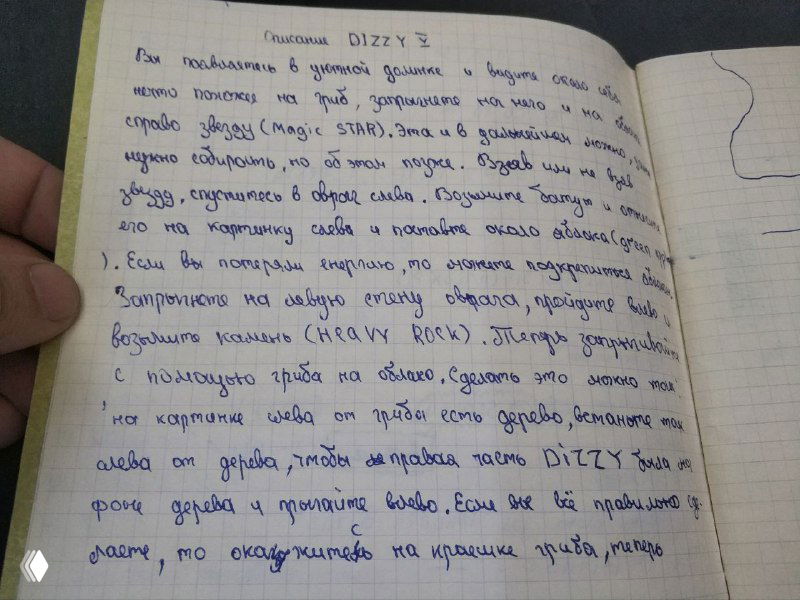 Описание DIZZY V
Вы появляетесь в уютной долинке и видите около себя
нечто похожее на гриб, запрыгнете на него и на облаке
справо звезду (Magic STAR). Эта и в дальнейшем можно,
нужно собирать, но об этом позже. Взяв или не взяв
звезду, спуститесь в овраг слева. Возьмите батут и
его на картинку слева и поставте около яблока (green
). Если вы потеряли енергию, то можете подкрепиться
Запрыгнете на левую стену оврага, пройдите влево и
возьмите камень (HEAVY ROCK). Теперь запрыгивайте
с помощью гриба на облако. Сделать это можно так:
на картинке слева от грибы есть дерево, встаньте так
слева от дерева, чтобы правая часть DiZZY была на
фоне дерева и прыгайте влево. Если вы всё правильно сде-
лаете, то окажитесь на краешке гриба, теперь